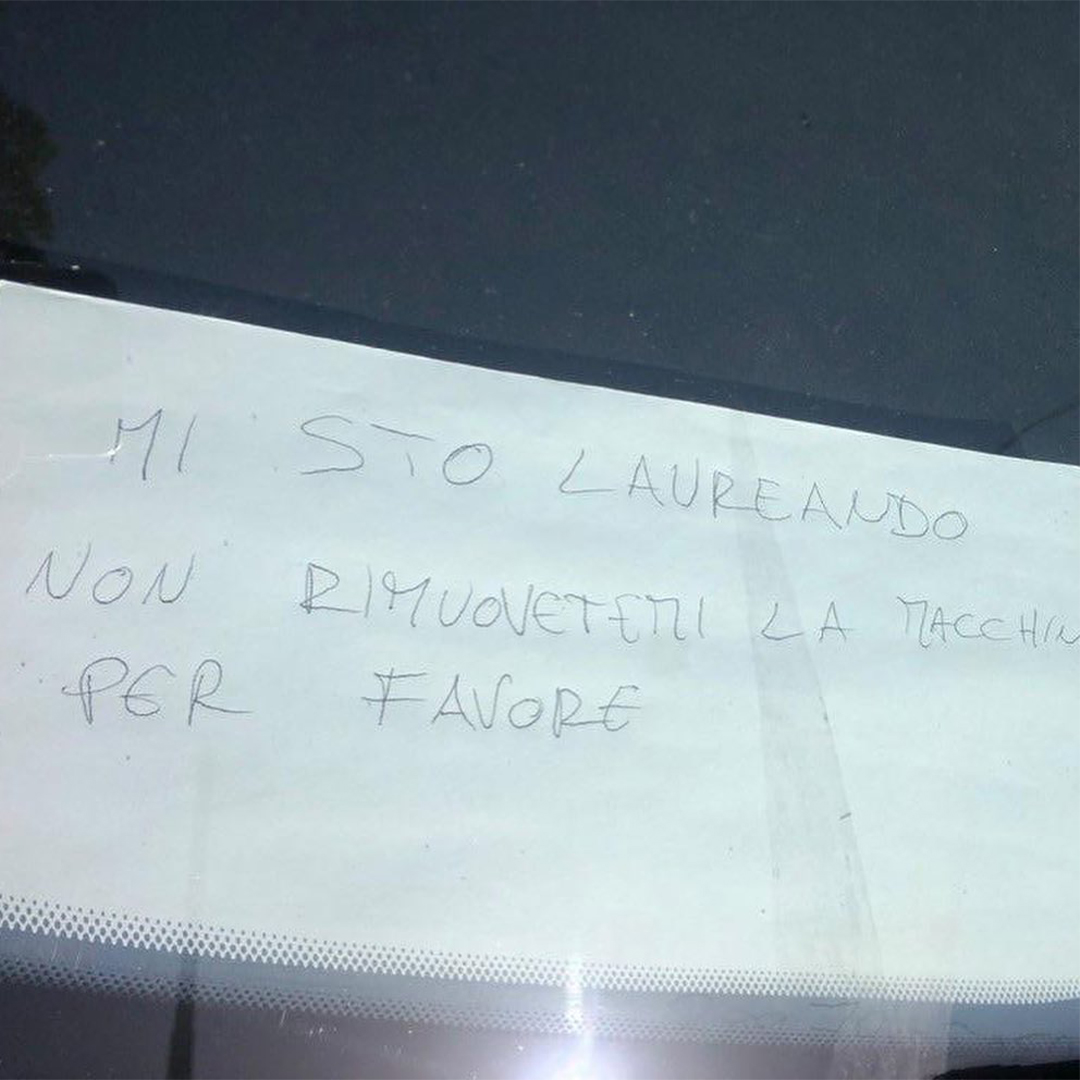 MI STO LAUREANDO
NON RIMUOVETEMI LA MACCHIN
PER FAVORE